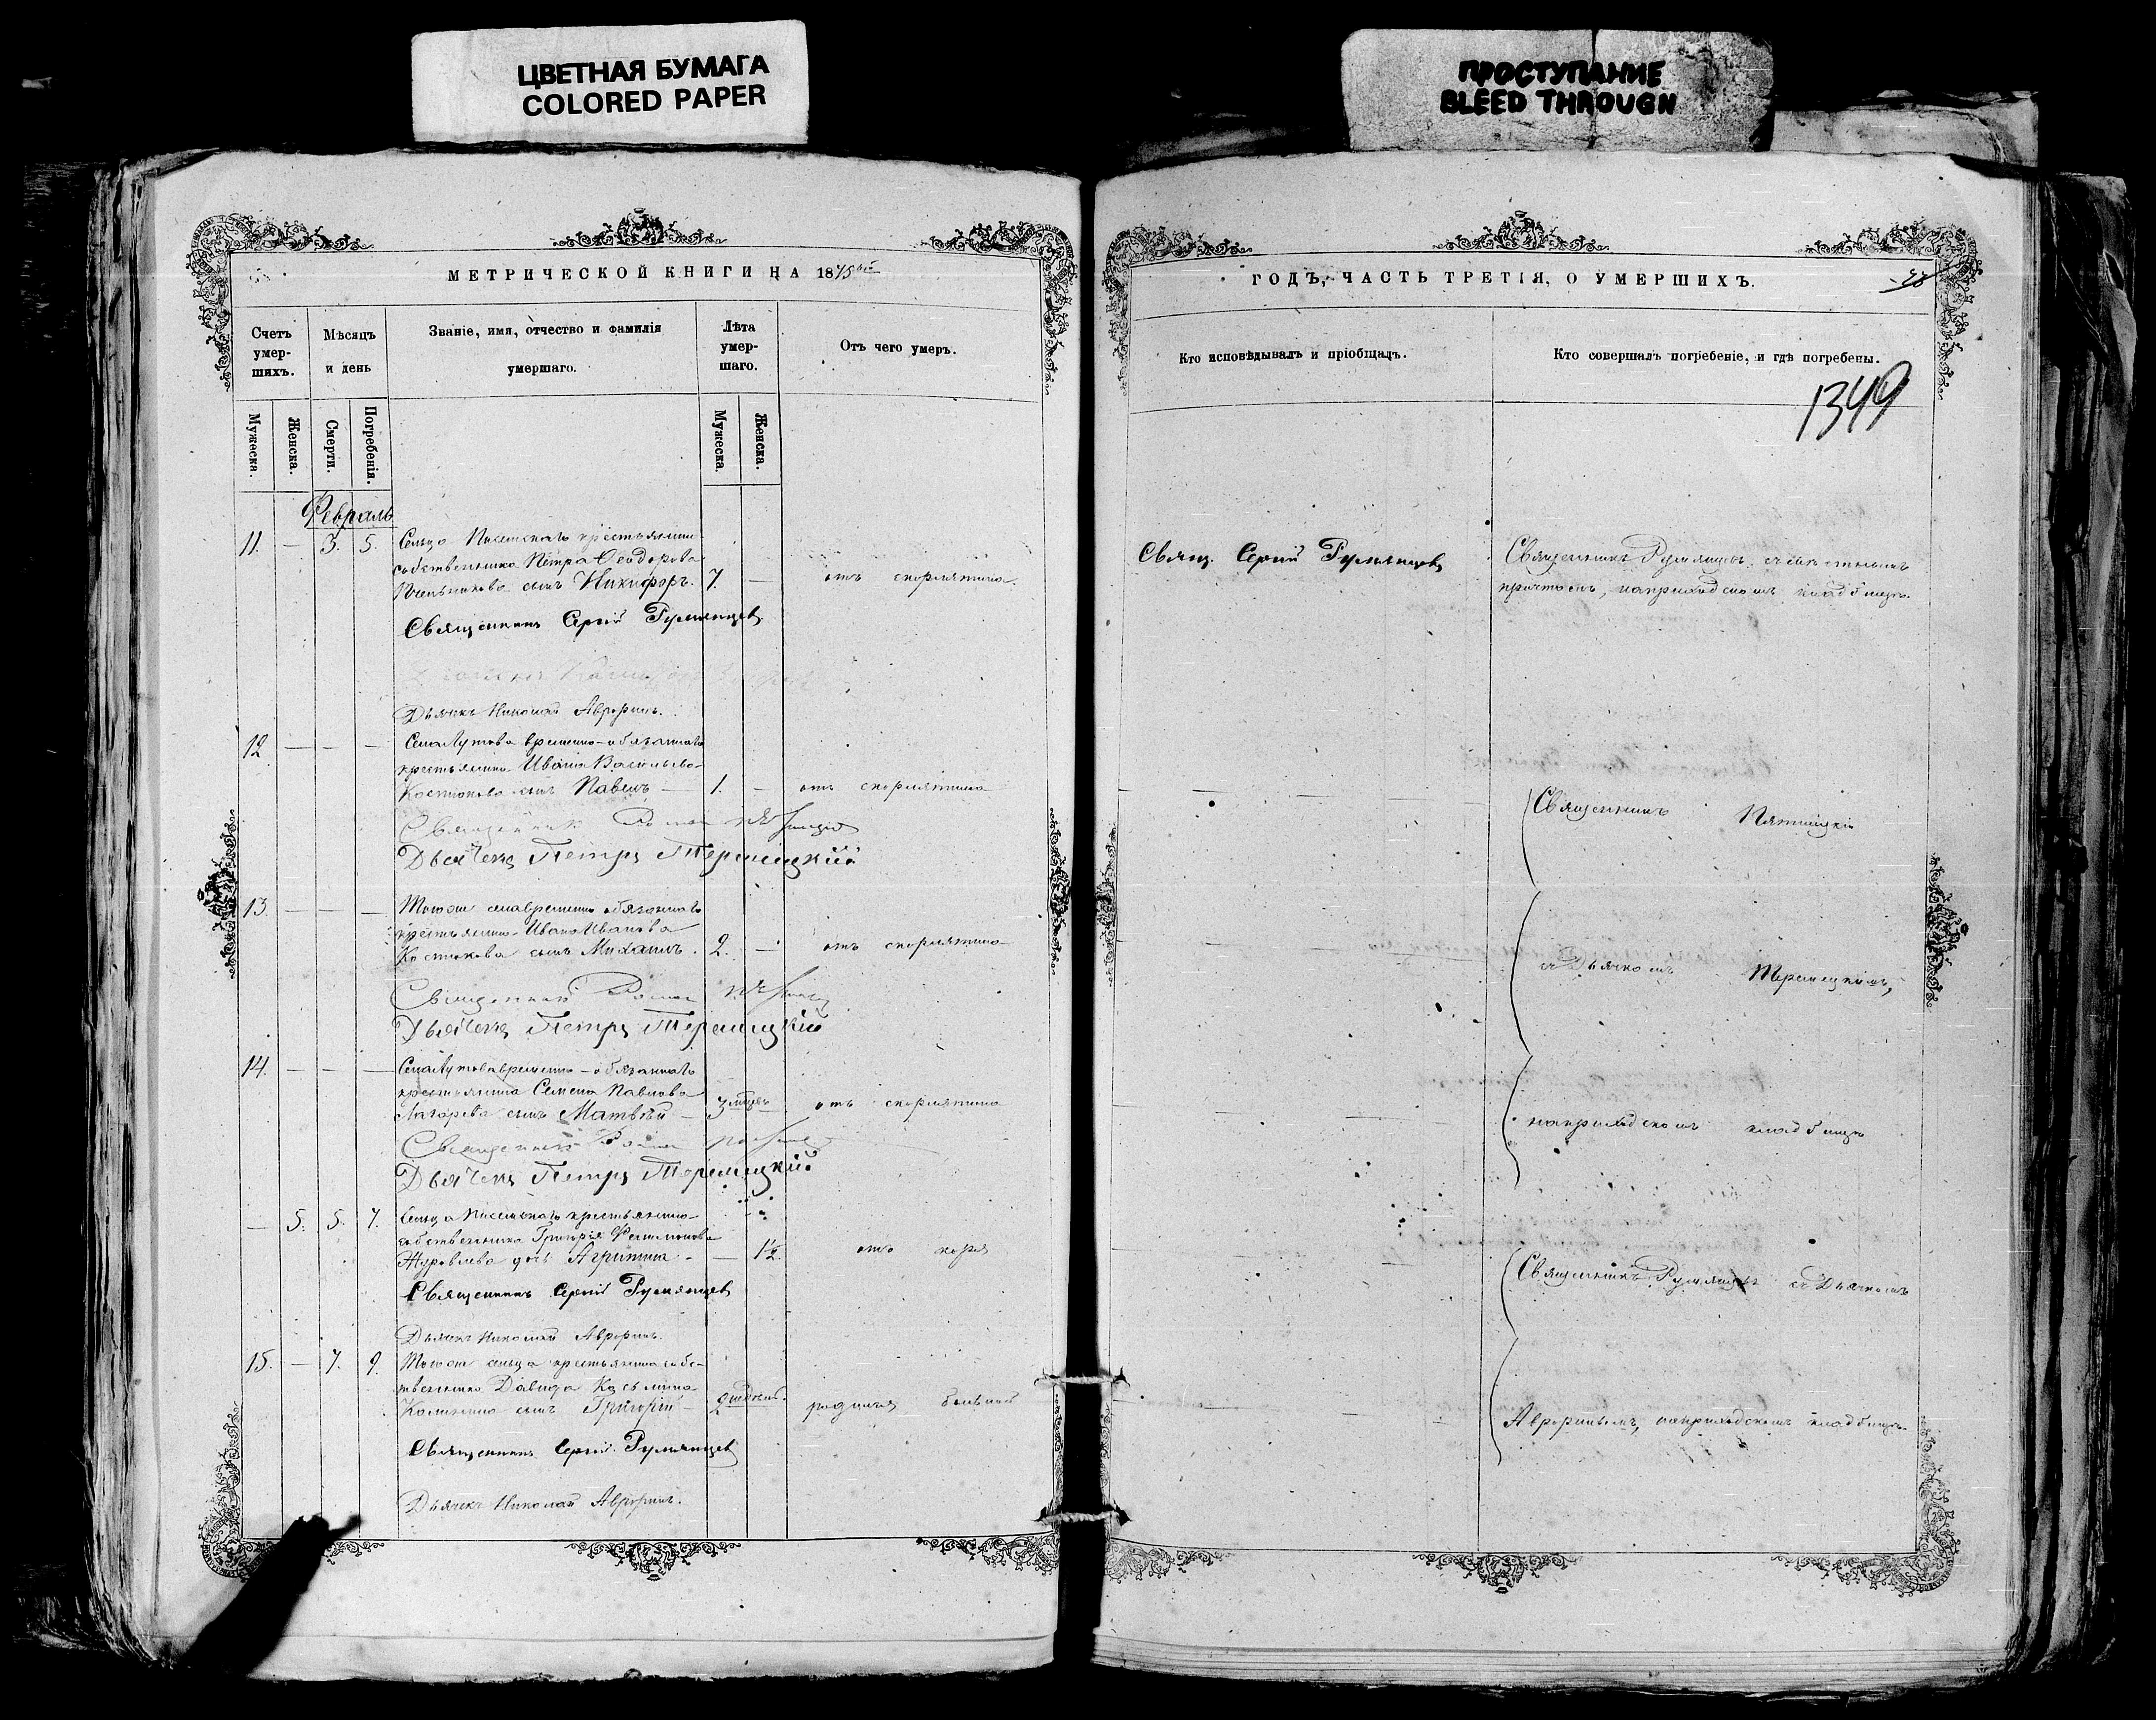 ЦВЕТНАЯ БУМАГА
COLORED PAPER
ПРОСТУПАНИЕ
BLEED THROUGH
МЕТРИЧЕСКОЙ КНИГИ НА 1875й
Счетъ умер-шихъ.
Мѣсяцъ и день
Званіе, имя, отчество и фамилія умершаго.
Лѣта умер-шаго.
Отъ чего умеръ.
Мужеска.
Женска.
Смерти.
Погребенія.
Мужеска.
Женска.
Февраль
11. — 3. 5. Сельца крестьянина
собственника Петра Ѳеодорова
сынъ Никифоръ. 7. — отъ скорлятина
Священникъ Сергій Румянцевъ
Дьячекъ Николай Авроринъ.
12 — — — Села Лутова временно-обязаннаго
крестьянина Ивана Васильева
Костюкова сынъ Павелъ — 1. — отъ скорлятина
Священникъ
Дьячекъ Петръ Терлецкій
13. — — — Тогоже села временно обязаннаго
крестьянина Ивана Иванова
Костюкова сынъ Михаилъ. 2. — отъ скорлятина
Священникъ
Дьячекъ Петръ Терлецкій
14. — — — Села Лутова временно-обязаннаго
крестьянина Семена Павлова
Лагарева сынъ Матвѣй — 3 мѣсец. отъ скорлятина
Священникъ
Дьячекъ Петръ Терлецкій
— 5. 5. 7. Сельца крестьянина
собственника Григорія Филимонова
Журавлева дочь Агрипина — — 1½. отъ коря
Священникъ Сергій Румянцевъ
Дьячекъ Николай Авроринъ.
15. — 7. 9. Тогоже сельца крестьянина собс-
твенника Давида Козьмина
Калинина сынъ Григорій — 2 недѣли. родился больной
Священникъ Сергій Румянцевъ
Дьячекъ Николай Авроринъ.
ГОДЪ, ЧАСТЬ ТРЕТІЯ, О УМЕРШИХЪ.
Кто исповѣдывалъ и пріобщалъ.
Кто совершалъ погребеніе, и гдѣ погребены.
1349
Свящ. Сергій Румянцевъ
Священникъ Румянцевъ, съ
причтомъ, на приходскомъ кладбищѣ.
Священникъ Пятницкій
съ Дьячкомъ Терлецкимъ,
на приходскомъ кладбищѣ
Священникъ Румянцевъ съ Дьячкомъ
Аврориномъ, на приходскомъ кладбищѣ.